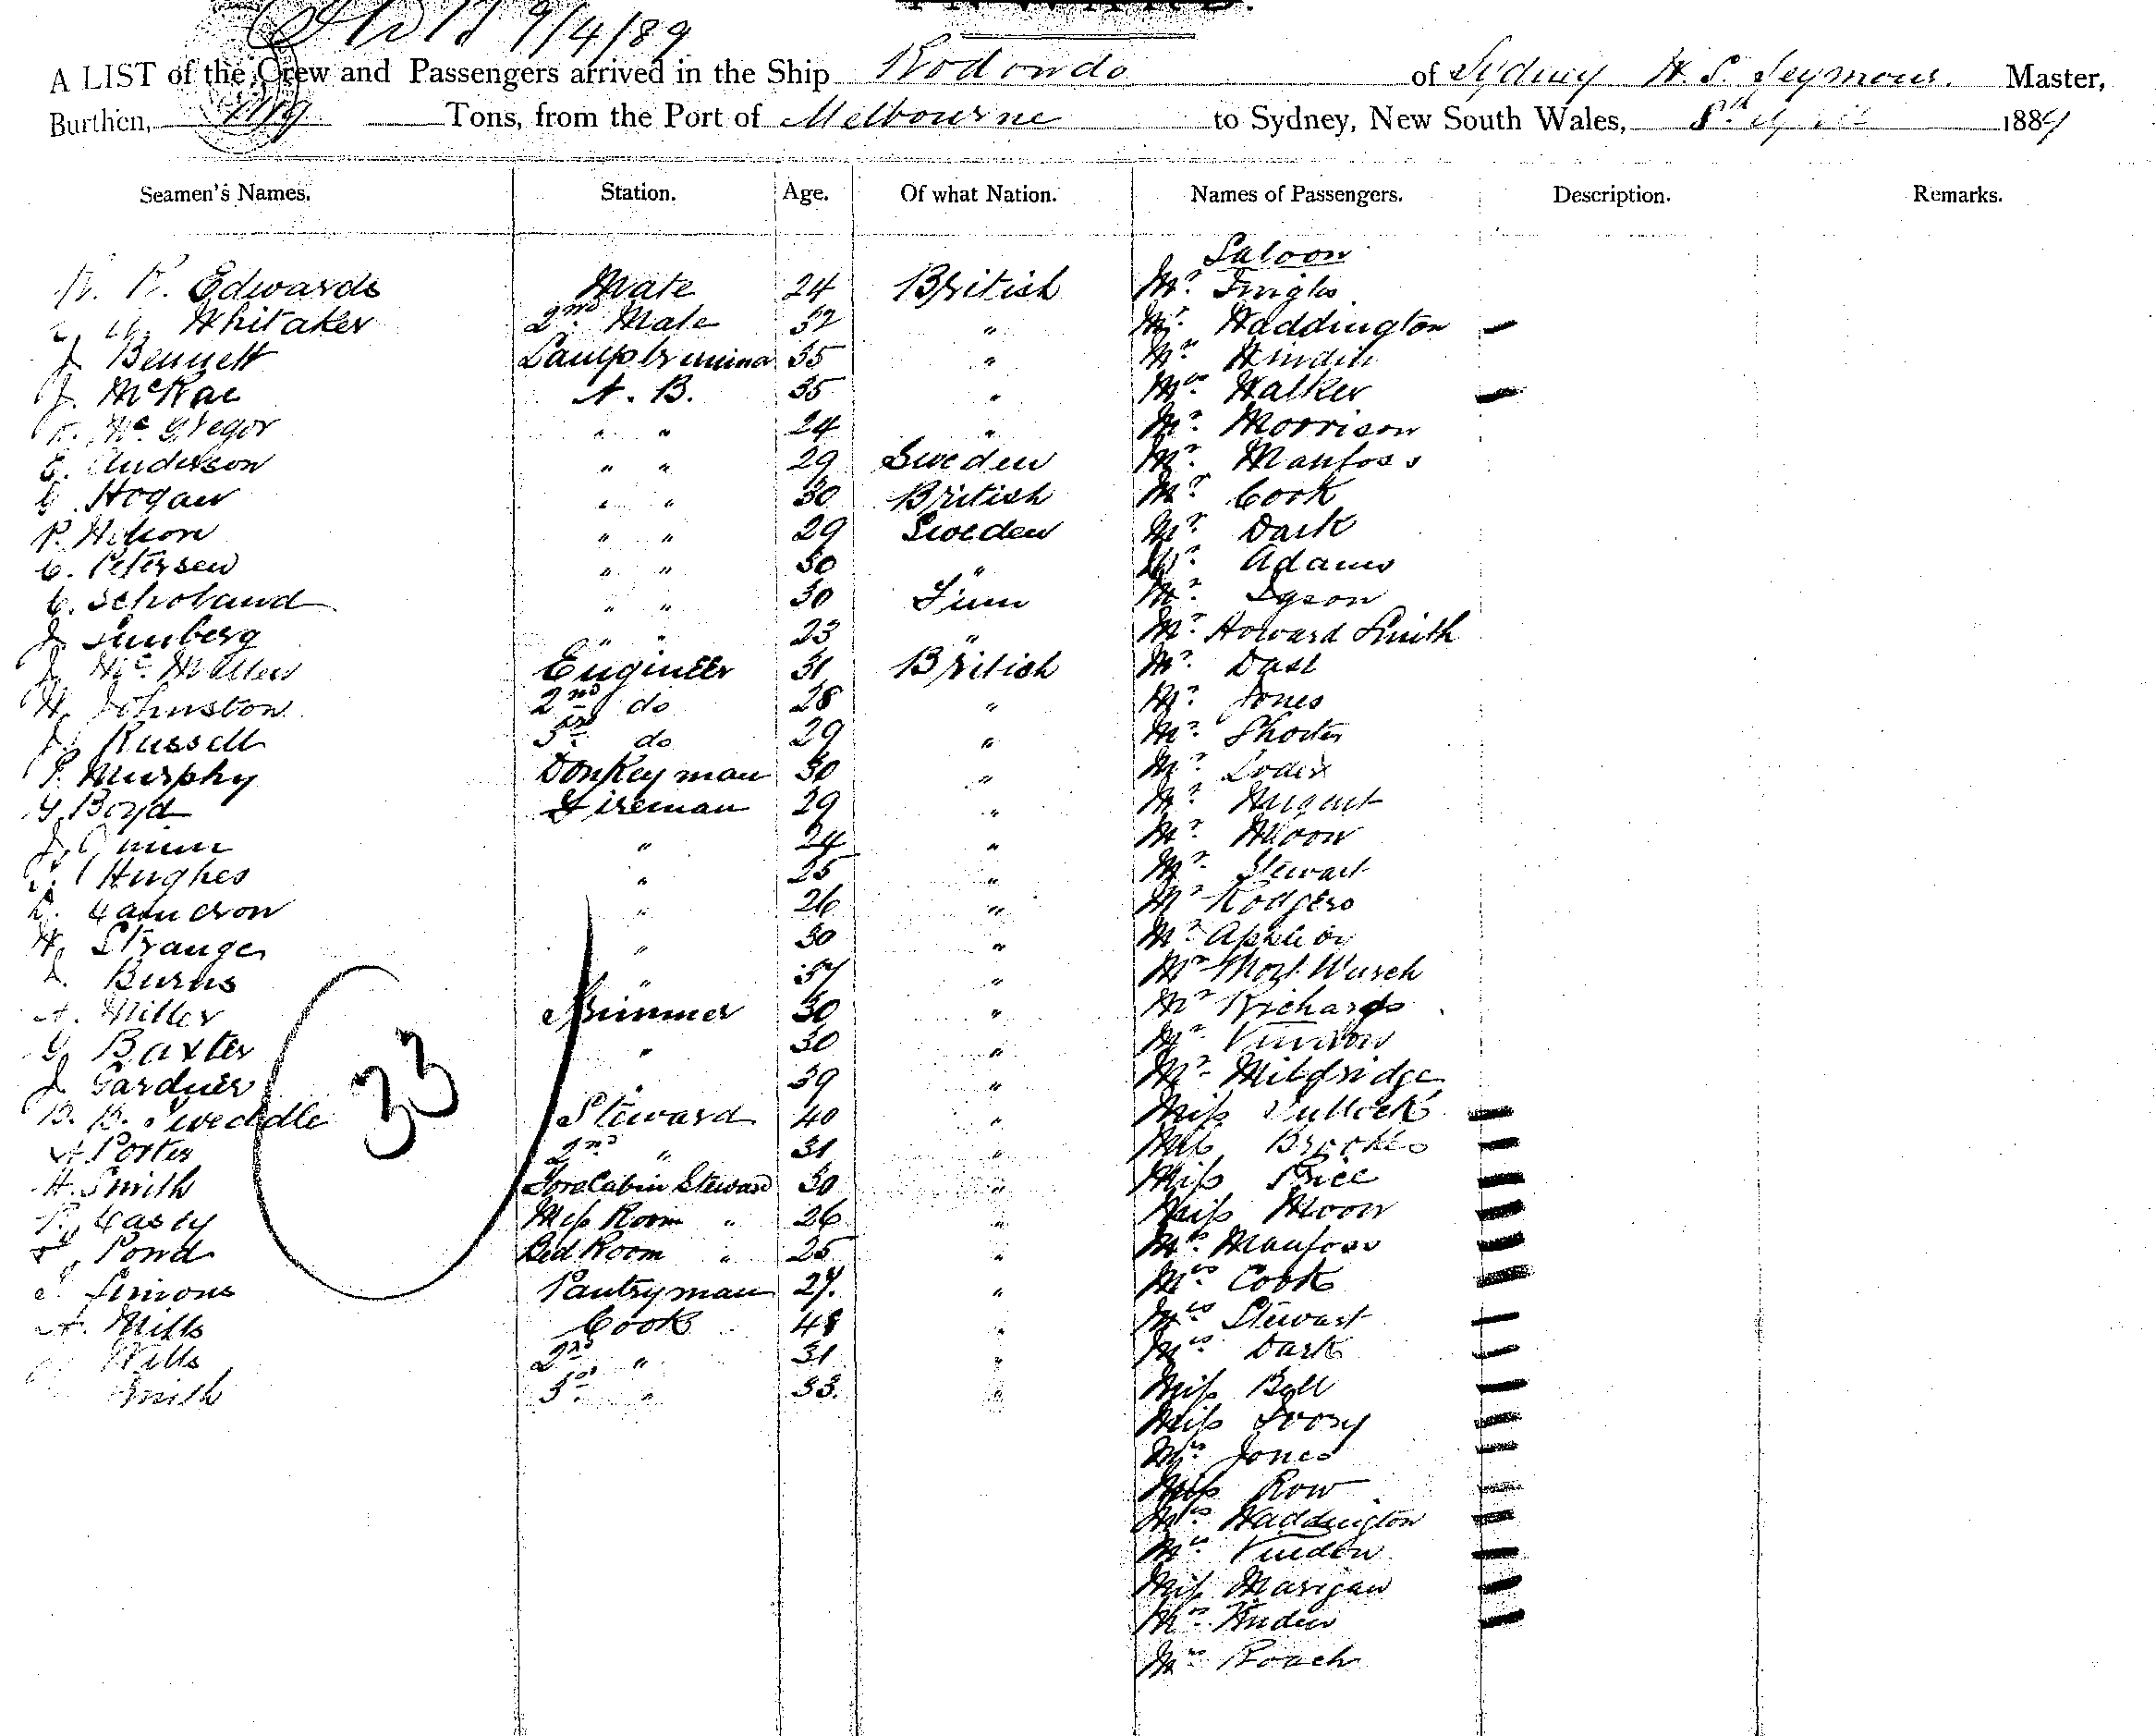 9/4/89
A LIST of the Crew and Passengers arrived in the Ship Rodondo of Sydney H. S. Seymour. Master,
Burthen, 1119 Tons, from the Port of Melbourne to Sydney, New South Wales, 8th April 1889
Seamen's Names. Station. Age. Of what Nation. Names of Passengers. Description. Remarks.
Saloon
Edwards Mate 24 British Mr.
Whitaker 2nd Mate 32 " Mr. Waddington
J. Bennett Lamptrimmer 35 " Mr.
J. McRae A. B. 35 " Mrs. Walker
McGregor " " 24 " Mr. Morrison
Anderson " " 29 Sweden Mr. Manfoss
Hogan " " 30 British Mr. Cook
P. " " 29 Sweden Mr. Dark
C. Petersen " " 30 " Mr. Adams
C. " " 30 Finn Mr. Dyson
J. " " 23 " Mr. Howard Smith
J. Engineer 31 British Mr. Dast
W. Johnston 2nd do 28 " Mr. Jones
J. Russell 3rd do 29 " Mr. Shorter
P. Murphy Donkeyman 30 " Mr.
G. Boyd Fireman 29 " Mr. Nugent
J. Quinn " 24 " Mr. Moon
Hughes " 25 " Mr. Stewart
" 26 " Mr. Rodgers
W. Stranger " 30 " Mr.
Burns " 37 " Mr.
A. Miller Trimmer 30 " Mr. Richards
G. Baxter " 30 " Mr.
J. Gardner " 39 " Mr. Mildridge
Tweddle Steward 40 " Miss
A. Porter 2nd " 31 " Miss Brookes
H. Smith Fore Cabin Steward 30 " Miss Price
Mess Room " 26 " Miss Moon
Pond Bed Room " 25 " Mrs. Manfoss
Simons Pantryman 27. " Mrs. Cook
A. Mills Cook 48 " Mrs. Stewart
Wills 2nd " 31 " Mrs. Dark
Smith 3rd " 33. " Miss Bell
33
Miss Ivory
Mrs. Jones
Miss Row
Mrs. Waddington
Mrs.
Miss
Mrs.
Mrs. Roach